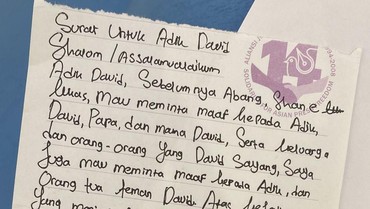 Surat untuk Adik David
Shalom / Assalamualaikum
Adik David, Sebelumnya Abang, Shane
Lukas, Mau meminta maaf kepada Adik,
David, Papa, dan mama David, Serta keluarga
dan orang-orang Yang David Sayang, Saya
Juga mau meminta maaf kepada Adik, dan
Orang tua teman David. Atas
Yang